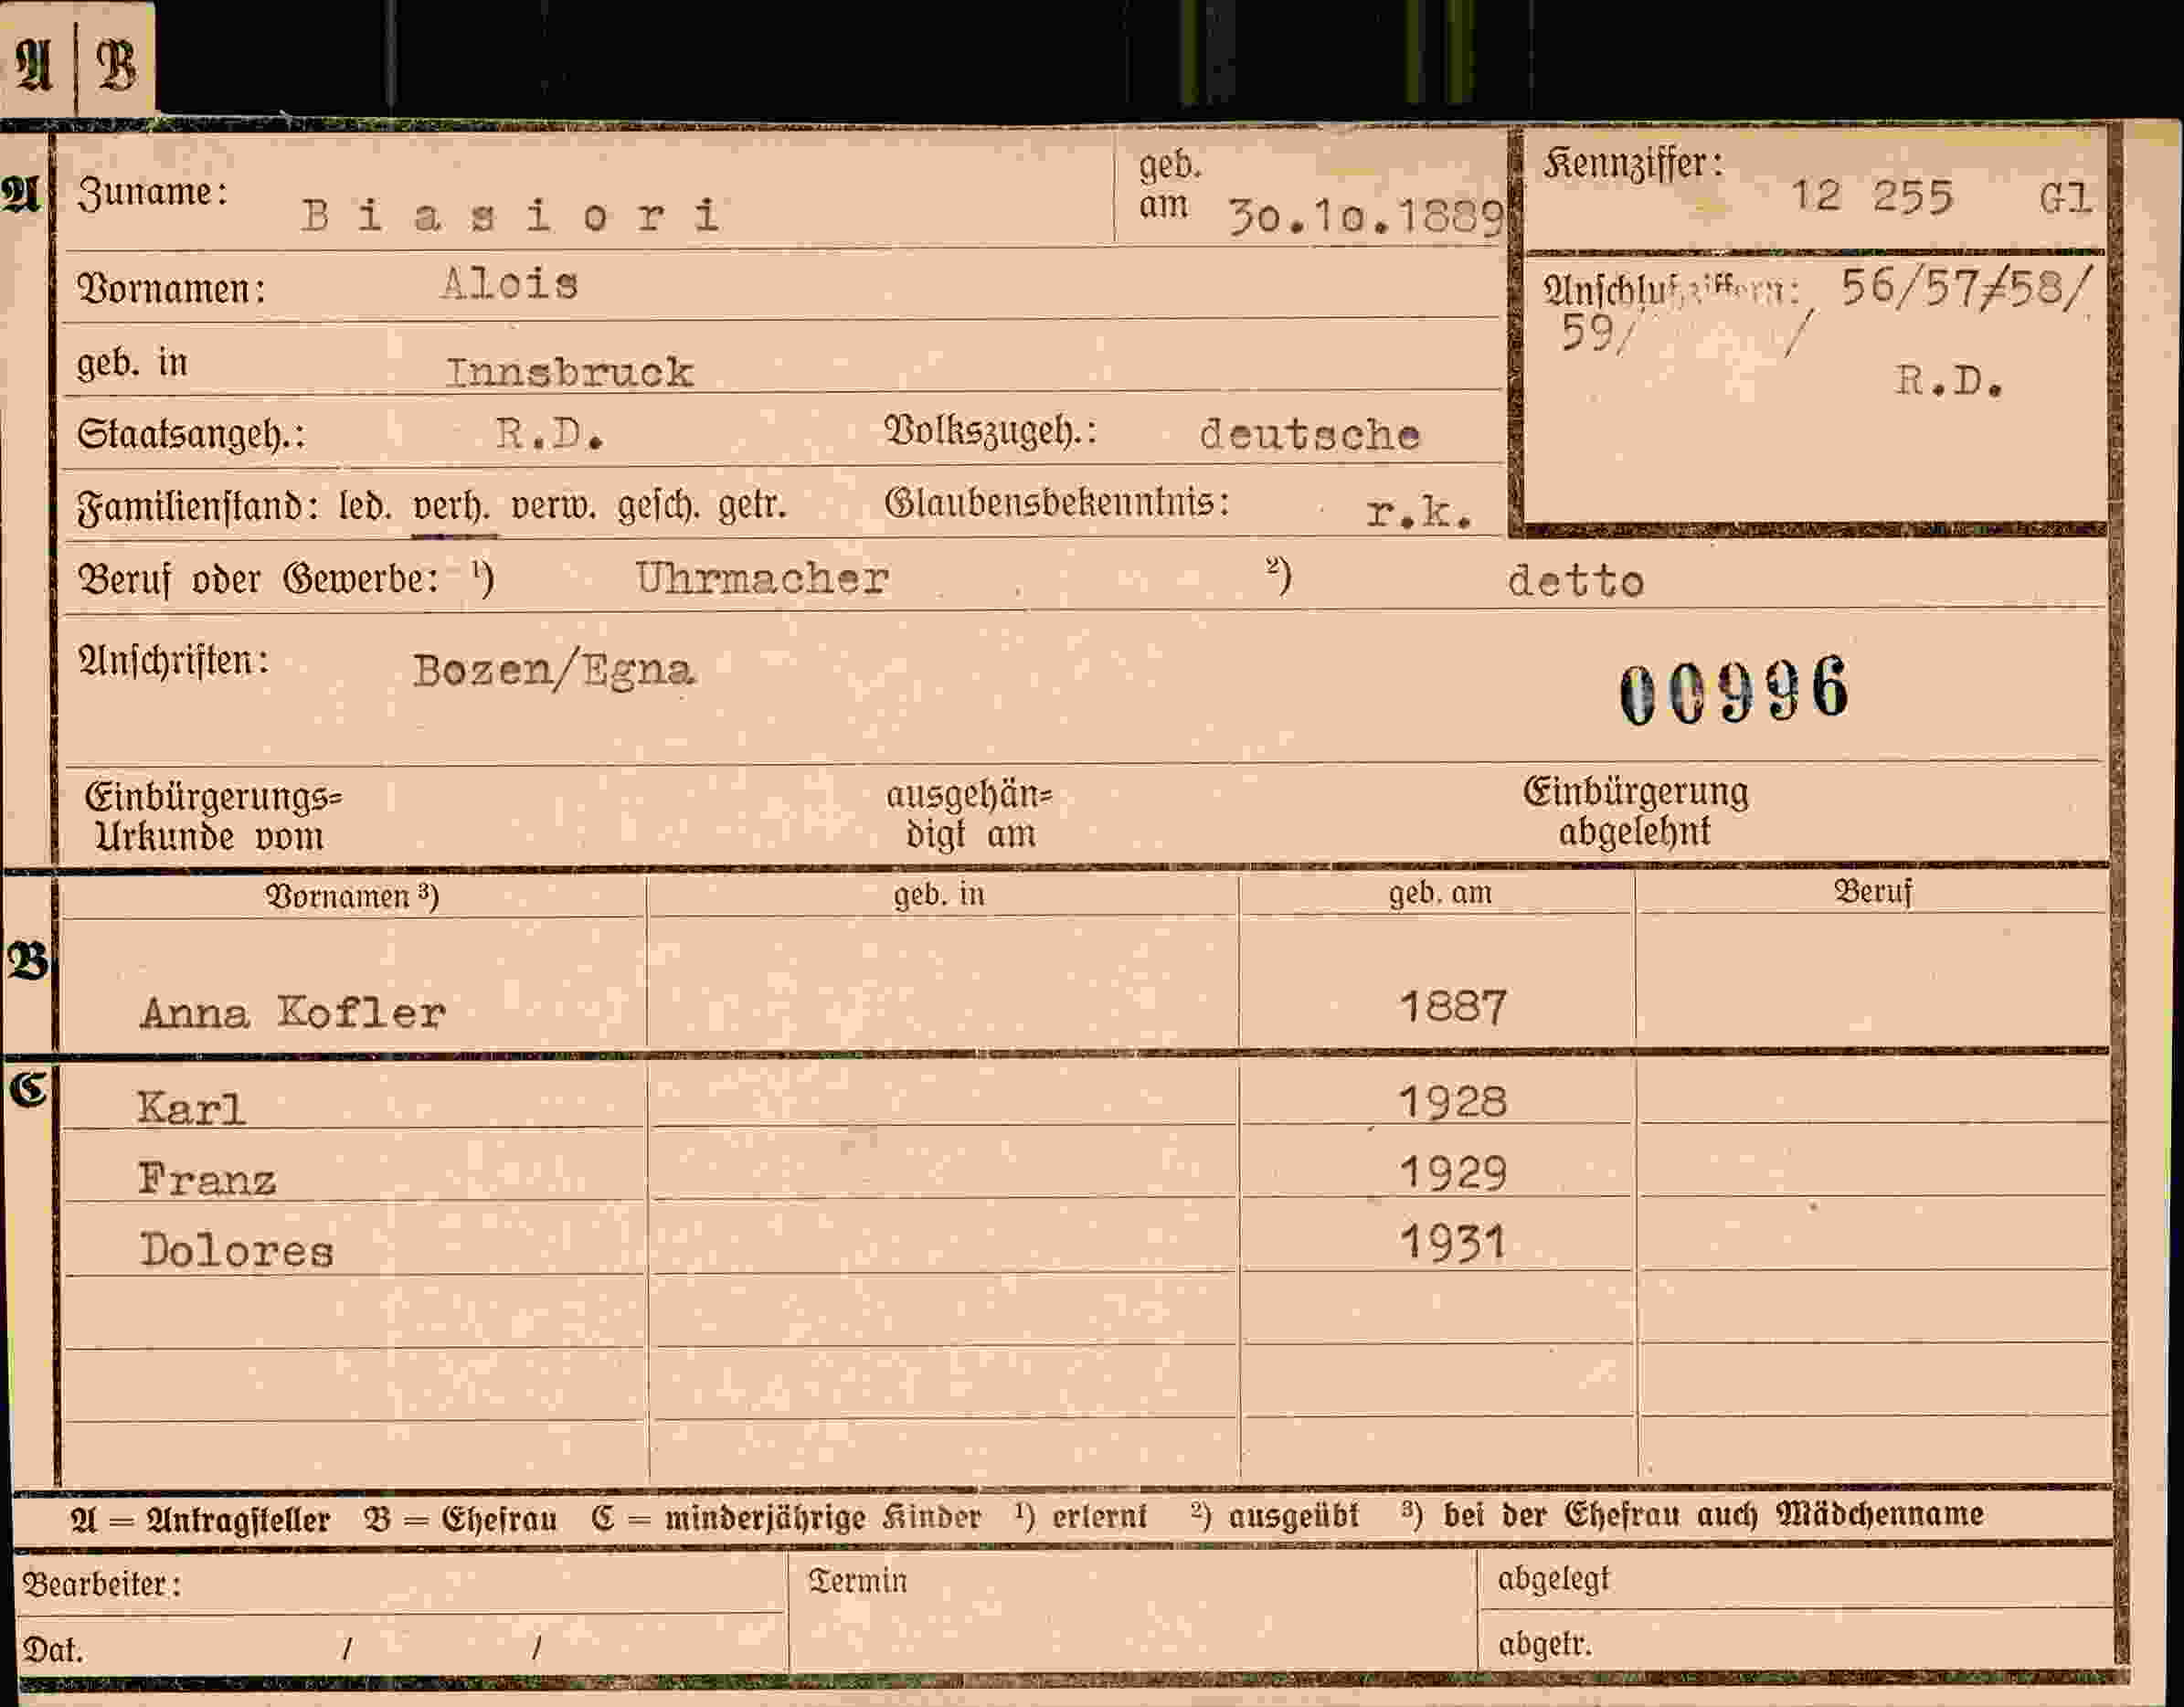 A | B
A Zuname: Biasiori geb. am 30.10.1889 Kennziffer: 12 255 Gl
Vornamen: Alois Anschlußziffern: 56/57/58/
59/ /
geb. in Innsbruck R.D.
Staatsangeh.: R.D. Volkszugeh.: deutsche
Familienstand: led. verh. verw. gesch. getr. Glaubensbekenntnis: r.k.
Beruf oder Gewerbe: ¹) Uhrmacher ²) detto
Anschriften: Bozen/Egna 00996
Einbürgerungs= ausgehän= Einbürgerung
Urkunde vom digt am abgelehnt
Vornamen ³) geb. in geb. am Beruf
B
Anna Kofler 1887
C Karl 1928
Franz 1929
Dolores 1931
A = Antragsteller B = Ehefrau C = minderjährige Kinder ¹) erlernt ²) ausgeübt ³) bei der Ehefrau auch Mädchenname
Bearbeiter: Termin abgelegt
Dat. / / abgetr.